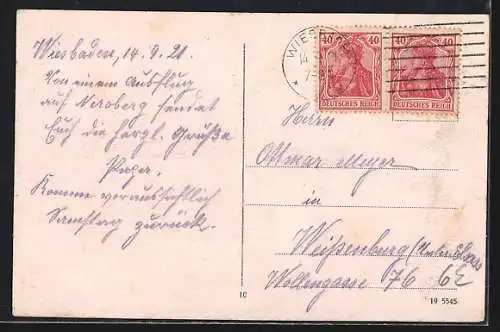 Wiesbaden, 14.9.21.
Von einem Ausflug
auf Neroberg sendet
Euch die herzl. Grüße
Papa.
Komme voraussichtlich
Samstag zurück.
WIES
40 40 40 40
DEUTSCHES REICH DEUTSCHES REICH
Herrn
Ottmar Meyer
in
Weißenburg (Unter Elsass
Wollengasse 76
1C
19 5545